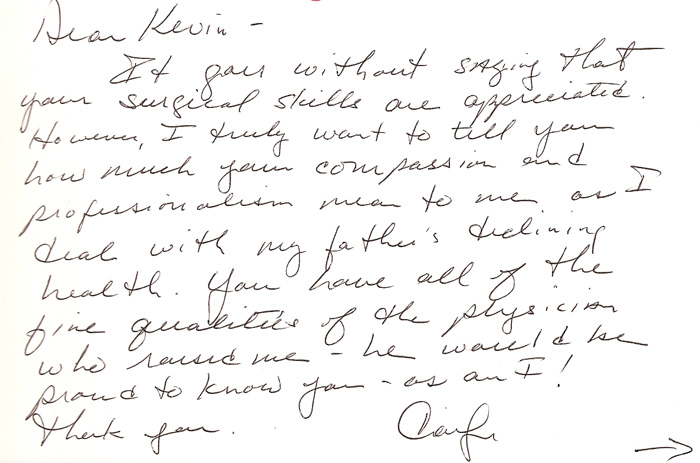 Dear Kevin -
It goes without saying that
your surgical skills are appreciated.
However, I truly want to tell you
how much your compassion and
professionalism mean to me as I
deal with my father's declining
health. You have all of the
fine qualities of the physician
who raised me - he would be
proud to know you - as am I!
Thank you.
→